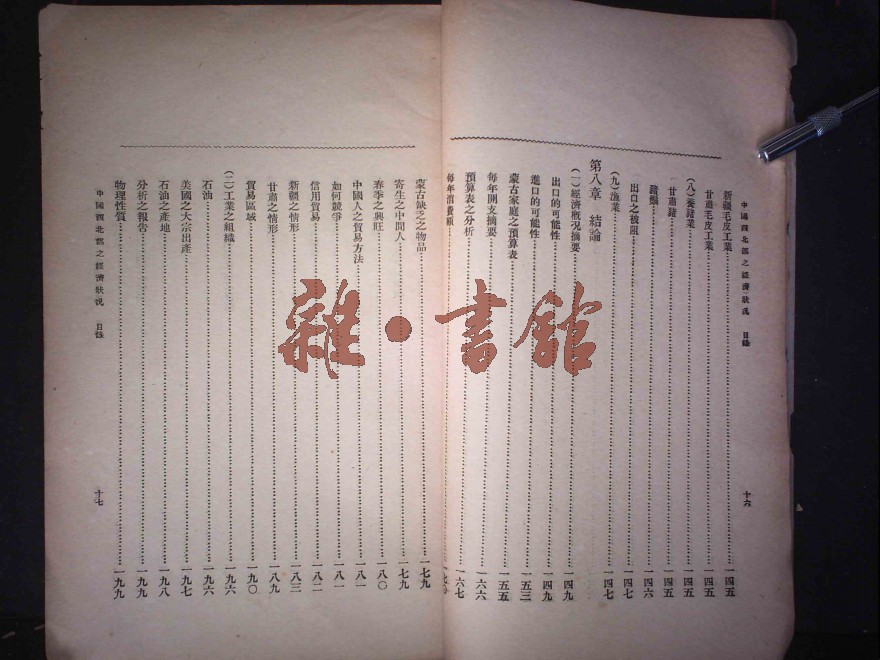 中國西北部之經濟狀況 目錄
新疆毛皮工業 一四五
甘肅毛皮工業 一四五
(八)養豬業 一四五
甘肅豬 一四五
豬鬃 一四六
出口之被阻 一四七
(九)漁業 一四七
第八章 結論
(一)經濟概況摘要 一四九
出口的可能性 一四九
進口的可能性 一五三
蒙古家庭之預算表 一五五
每年開支摘要 一六六
預算表之分析 一六七
每年消費額
十六
蒙古缺乏之物品 一七九
寄生之中間人 一七九
春季之興旺 一八〇
中國人之貿易方法 一八一
如何競爭 一八一
信用貿易 一八二
新疆之情形 一八三
甘肅之情形 一八九
貿易區域 一九〇
(二)工業之組織 一九六
石油 一九六
美國之大宗出產 一九七
石油之產地 一九八
分析之報告 一九九
物理性質 一九九
中國西北部之經濟狀況 目錄
十七
雜·書館